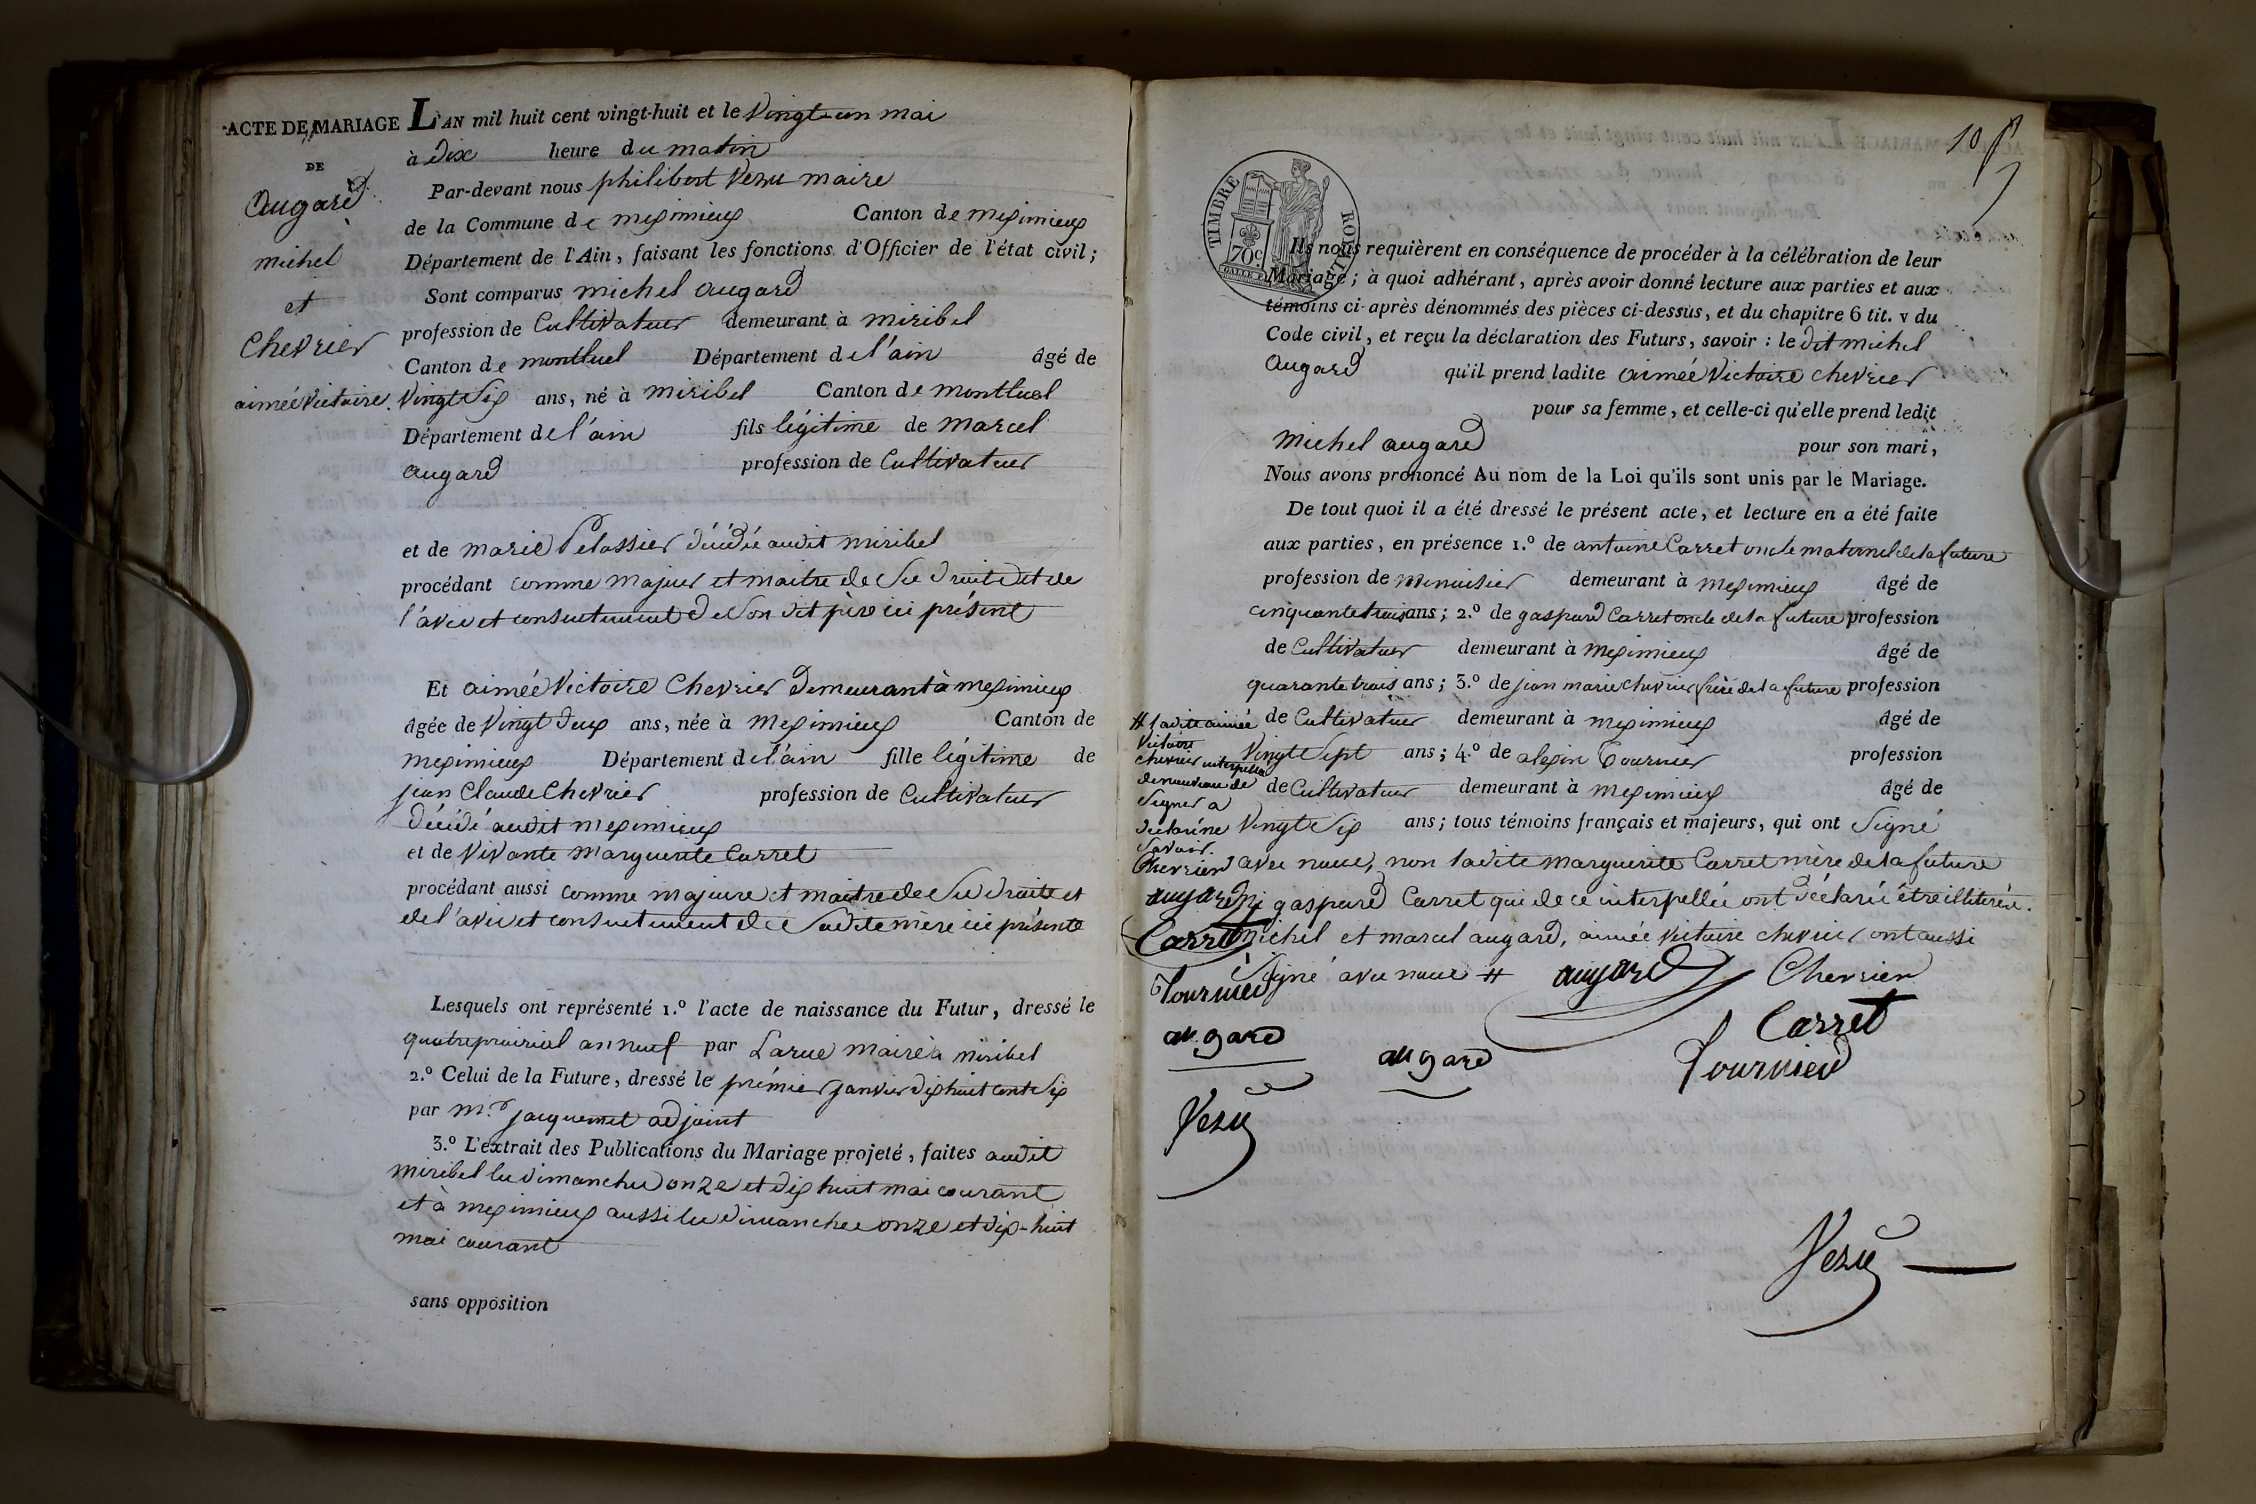 ACTE DE MARIAGE L'AN mil huit cent vingt-huit et le vingt-un mai
DE
à dix heure du matin
augard
Par-devant nous philibert Vezu maire
de la Commune de meximieux Canton de meximieux
michel
Département de l'Ain, faisant les fonctions d'Officier de l'état civil;
et
Sont comparus michel augard
Chevrier
profession de Cultivateur demeurant à miribel
Canton de montluel Département de l'ain âgé de
aimée victoire.
vingt Six ans, né à miribel Canton de montluel
Département de l'ain fils légitime de marcel
augard profession de Cultivateur
et de marie Pelassier décédée audit miribel
procédant comme majeur et maitre de Ses droits et de
l'avis et consentement de Son dit père ici présent
Et aimée Victoire Chevrier demeurant à meximieux
âgée de vingt deux ans, née à meximieux Canton de
meximieux Département de l'ain fille légitime de
jean Claude Chevrier profession de Cultivateur
décédé audit meximieux
et de vivante marguerite Carret
procédant aussi comme majeure et maitre de Ses droits et
de l'avis et consentement de Sadite mère ici présente
Lesquels ont représenté 1.º l'acte de naissance du Futur, dressé le
quatre prairial an neuf par Larue maire à miribel
2.º Celui de la Future, dressé le prémier janvier dix huit cent Six
par M.r jacquemet adjoint
3.º L'extrait des Publications du Mariage projeté, faites audit
miribel les dimanches onze et dix huit mai courant
et à meximieux aussi les dimanches onze et dix-huit
mai courant
sans opposition
10
TIMBRE ROYAL
70c
Ils nous requièrent en conséquence de procéder à la célébration de leur
Mariage; à quoi adhérant, après avoir donné lecture aux parties et aux
témoins ci-après dénommés des pièces ci-dessus, et du chapitre 6 tit. v du
Code civil, et reçu la déclaration des Futurs, savoir : le dit michel
augard qu'il prend ladite aimée Victoire chevrier
pour sa femme, et celle-ci qu'elle prend ledit
michel augard pour son mari,
Nous avons prononcé Au nom de la Loi qu'ils sont unis par le Mariage.
De tout quoi il a été dressé le présent acte, et lecture en a été faite
aux parties, en présence 1.º de antoine Carret oncle maternel de la future
profession de menuisier demeurant à meximieux âgé de
cinquante trois ans; 2.º de gaspard Carret oncle de la future profession
de Cultivateur demeurant à meximieux âgé de
quarante trois ans; 3.º de jean marie chevrier frère de la future profession
de Cultivateur demeurant à meximieux âgé de
vingt Sept ans; 4.º de alexin Tournier profession
de Cultivateur demeurant à meximieux âgé de
vingt Six ans; tous témoins français et majeurs, qui ont Signé
avec nous, non ladite marguerite Carret mère de la future
ni gaspard Carret qui de ce interpellés ont déclaré être illitérés.
michel et marcel augard, aimée victoire chevrier ont aussi
Signé avec nous #
# ladite aimée
Victoire
chevrier interpellée
de nouveau de
Signer a
déclaré ne
Savoir.
Chevrier
augard
Carret
Tournier
augard
Vezu
augard Chevrier
Carret
augard
Tournier
Vezu